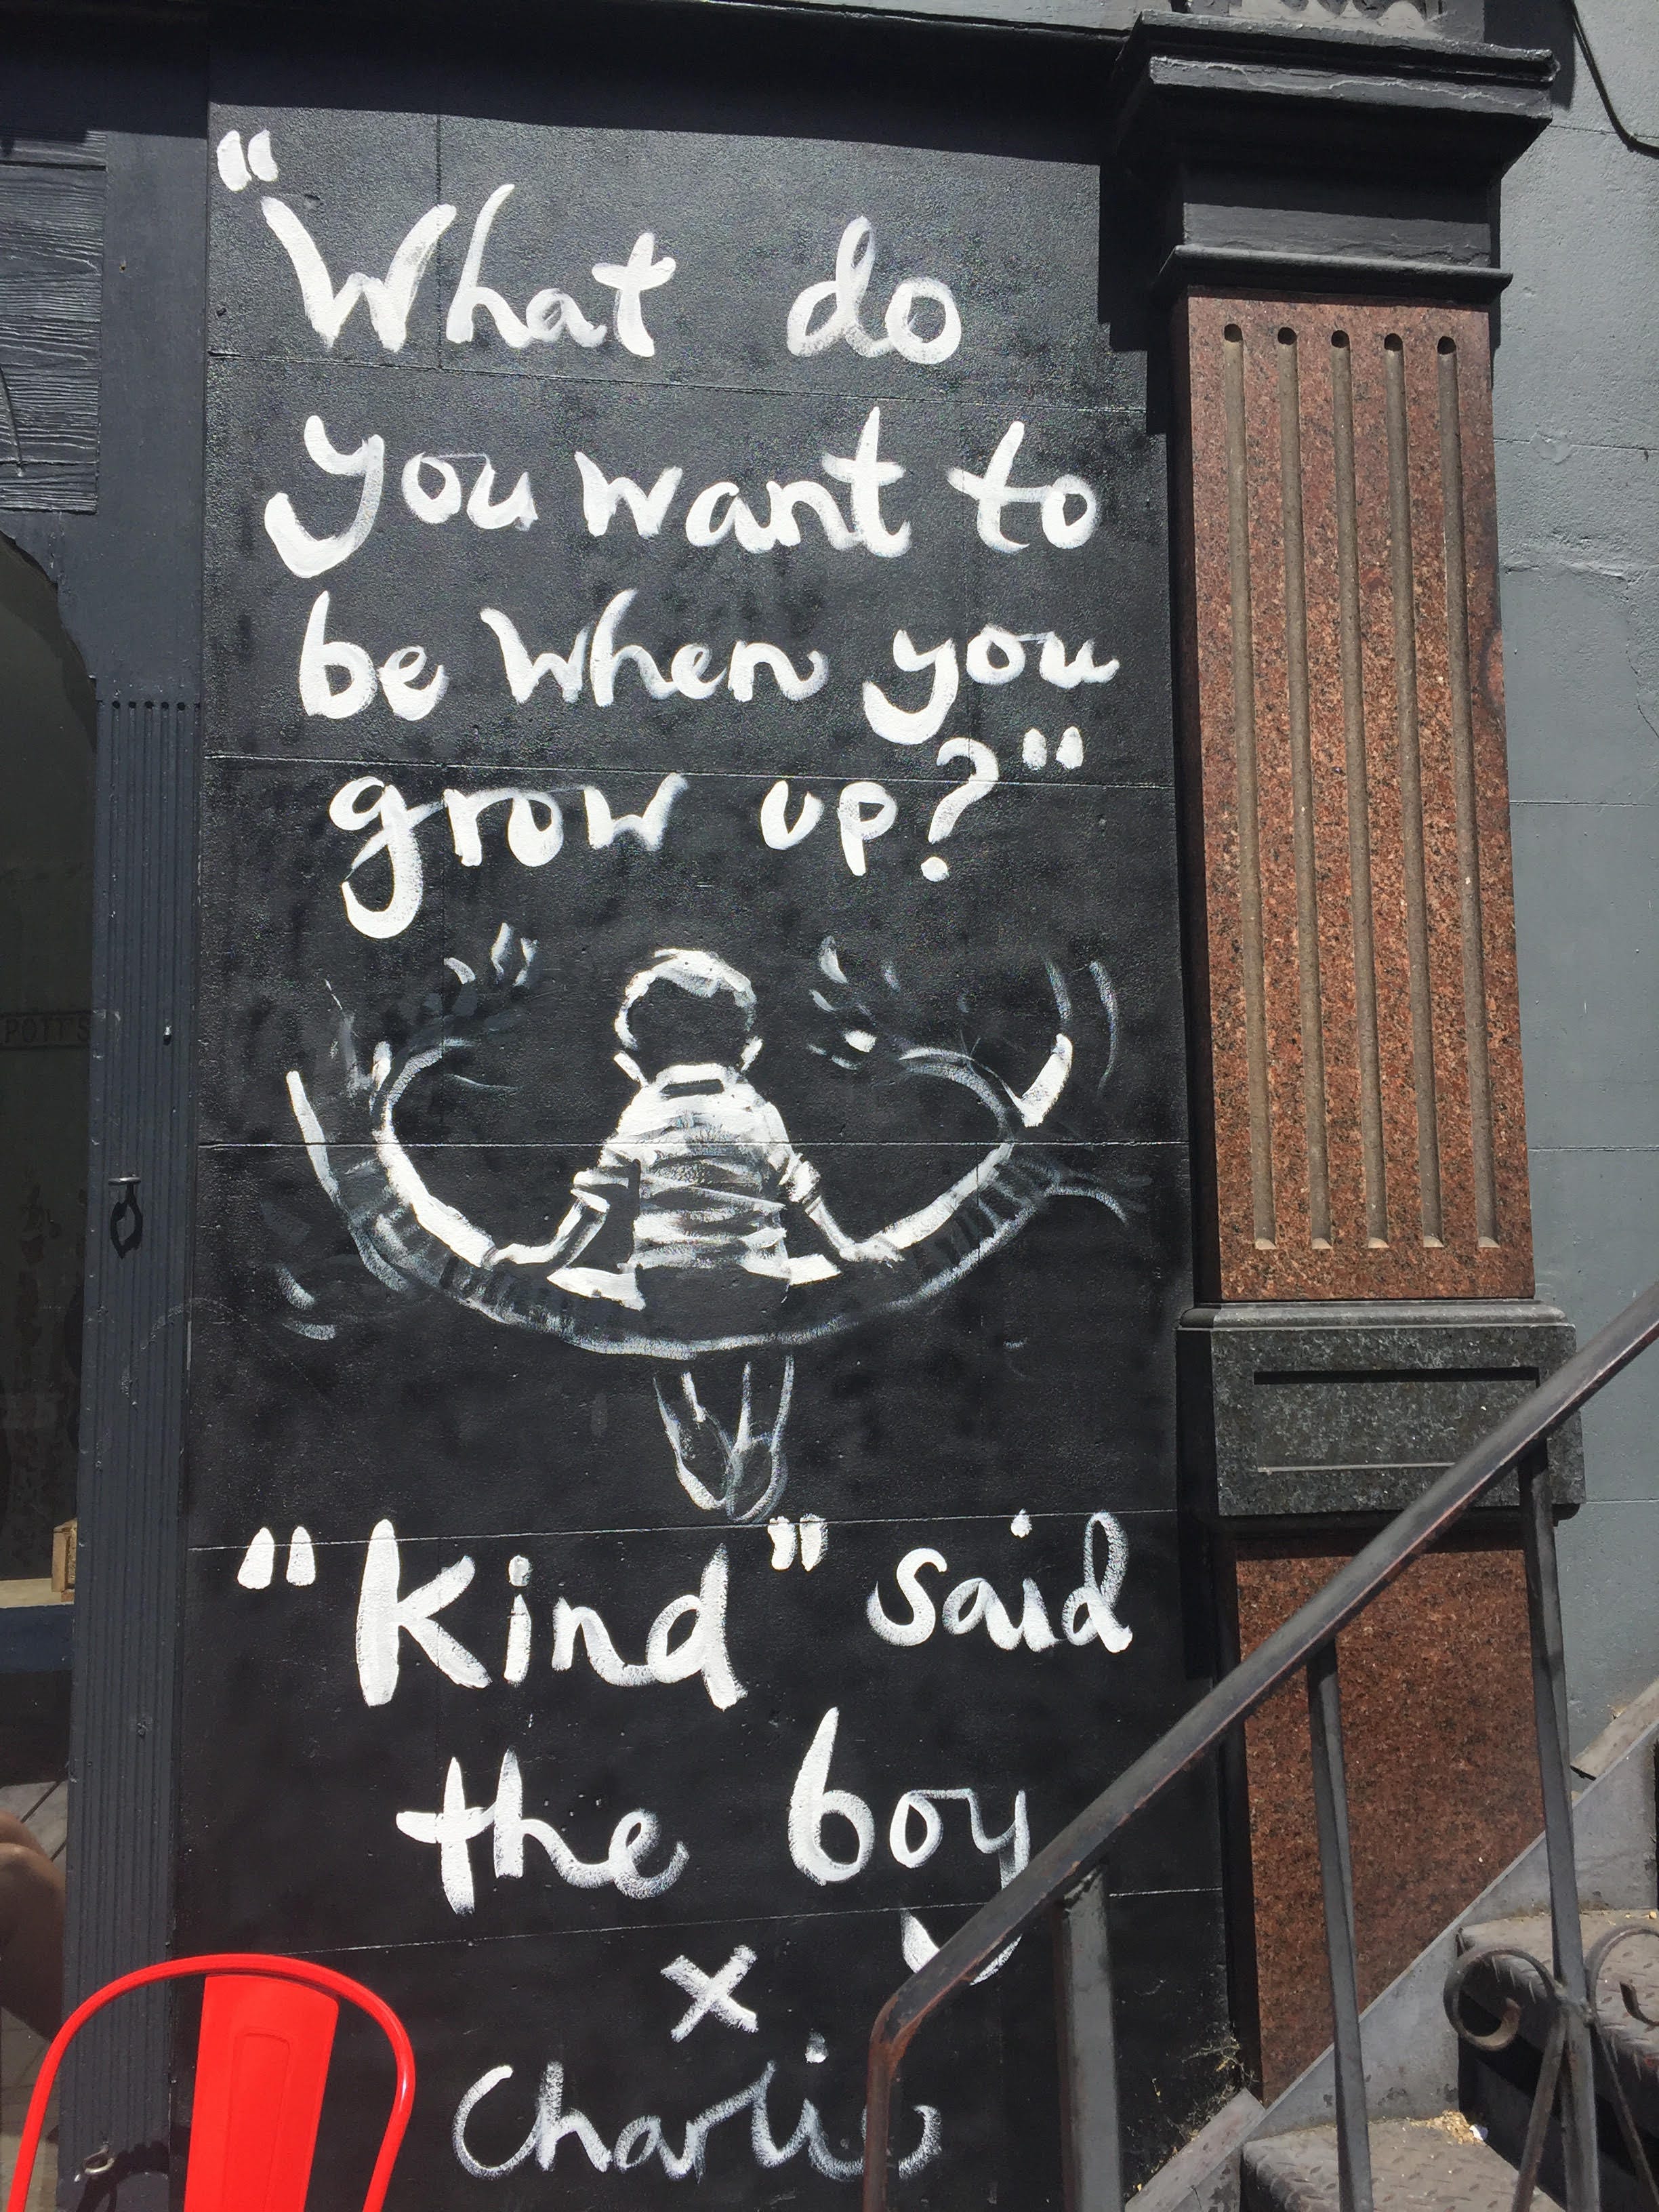 "What do
you want to
be when you
grow up?"
"Kind" said
the boy
x
Charlie
POTTS